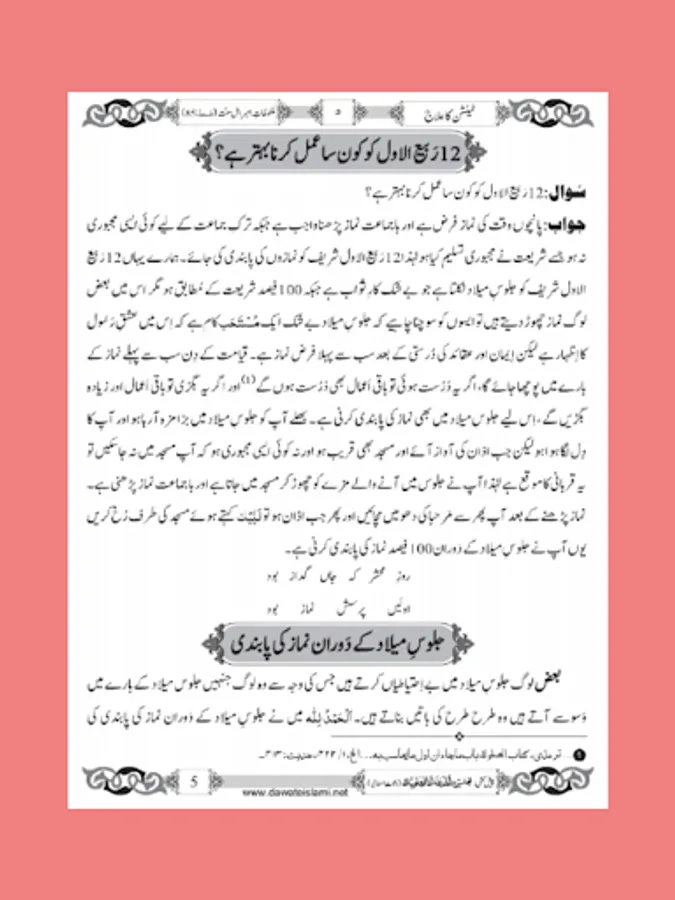 ٹینشن کا علاج
۵
ملفوظاتِ امیرِ اہلِ سنّت
12 رَبیعُ الاوّل کو کون سا عمل کرنا بہتر ہے؟
سُوال: 12 رَبیعُ الاوّل کو کون سا عمل کرنا بہتر ہے؟
جواب: پانچوں وقت کی نماز فرض ہے اور باجماعت نماز پڑھنا واجب ہے جبکہ ترکِ جماعت کے لیے کوئی ایسی مجبوری
نہ ہو جسے شریعت نے مجبوری تسلیم کیا ہو لہٰذا 12 رَبیعُ الاوّل شریف کو نمازوں کی پابندی کی جائے۔ ہمارے یہاں 12 رَبیعُ
الاوّل شریف کو جلوسِ میلاد نکلتا ہے جو بے شک کارِ ثواب ہے جبکہ 100 فیصد شریعت کے مُطابق ہو مگر اس میں بعض
لوگ نماز چھوڑ دیتے ہیں تو ایسوں کو سوچنا چاہیے کہ جلوسِ میلاد بے شک ایک مُسْتَحَب کام ہے کہ اِس میں عشقِ رَسُول
کا اِظہار ہے لیکن اِیمان اور عقائد کی دُرستی کے بعد سب سے پہلا فرض نماز ہے۔ قیامت کے دِن سب سے پہلے نماز کے
بارے میں پوچھا جائے گا، اگر یہ دُرست ہوئی تو باقی اَعمال بھی دُرست ہوں گے (1) اور اگر یہ بگڑی تو باقی اَعمال اور زیادہ
بگڑیں گے، اِس لیے جلوسِ میلاد میں بھی نماز کی پابندی کرنی ہے۔ بھلے آپ کو جلوسِ میلاد میں بڑا مزہ آ رہا ہو اور آپ کا
دِل لگا ہوا ہو لیکن جب اذان کی آواز آئے اور مسجد بھی قریب ہو اور نہ کوئی ایسی مجبوری ہو کہ آپ مسجد میں نہ جا سکیں تو
یہ قربانی کا موقع ہے لہٰذا آپ نے جلوس میں آنے والے مزے کو چھوڑ کر مسجد میں جانا ہے اور باجماعت نماز پڑھنی ہے۔
نماز پڑھنے کے بعد آپ پھر سے مَرحبا کی دھومیں مچائیں اور پھر جب اذان ہو تو لَبَّیْک کہتے ہوئے مسجد کی طرف رُخ کریں
یوں آپ نے جلوسِ میلاد کے دَوران 100 فیصد نماز کی پابندی کرنی ہے۔
روزِ محشر کہ جاں گداز بود
اوّلیں پرسشِ نماز بود
جلوسِ میلاد کے دَوران نماز کی پابندی
بعض لوگ جلوسِ میلاد میں بے اِحتیاطیاں کرتے ہیں جس کی وجہ سے وہ لوگ جنہیں جلوسِ میلاد کے بارے میں
وَسوسے آتے ہیں وہ طرح طرح کی باتیں بناتے ہیں۔ اَلْحَمْدُ لِلّٰہ میں نے جلوسِ میلاد کے دَوران نماز کی پابندی کی
1 ... ترمذی، کتاب الصلوٰۃ، باب ماجاء ان اول ما یحاسب بہ ... الخ
5
www.dawateislami.net